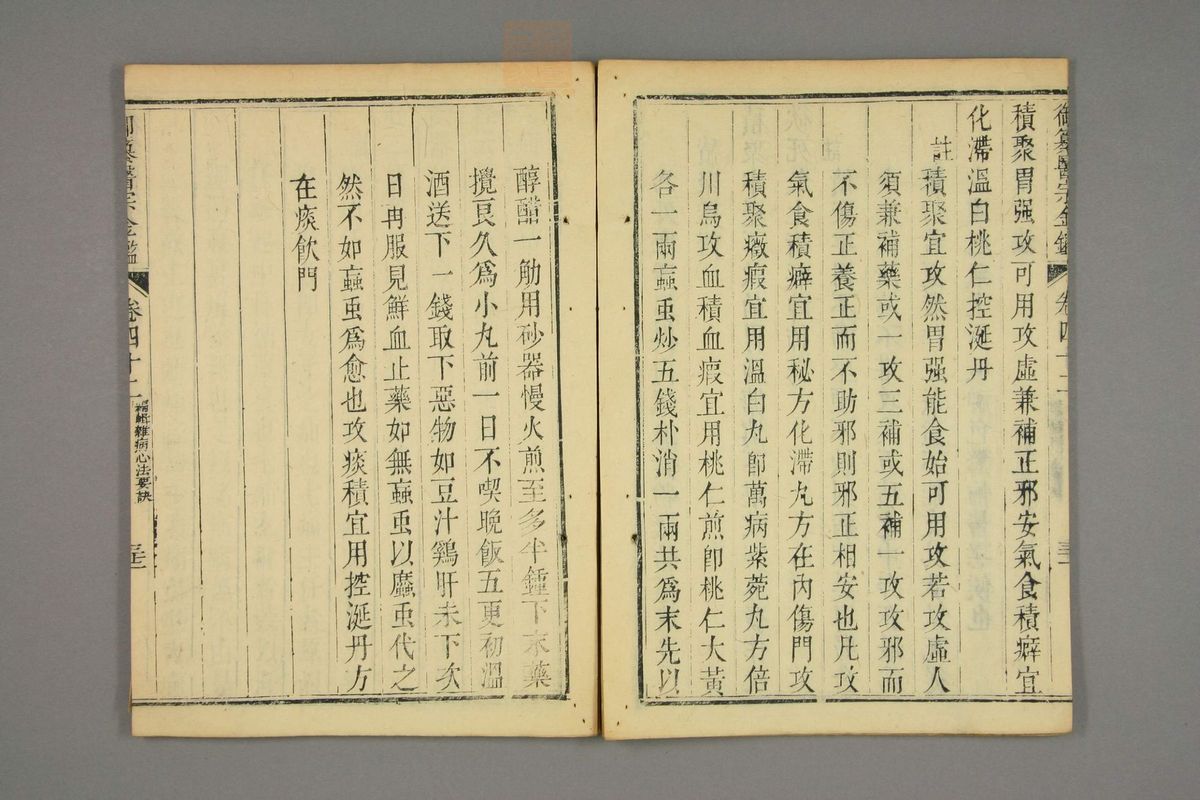 御纂醫宗金鑑 卷四十二
積聚胃强攻可用攻虛兼補正邪安氣食積癖宜
化滯溫白桃仁控涎丹
註積聚宜攻然胃强能食始可用攻若攻虛人
須兼補藥或一攻三補或五補一攻攻邪而
不傷正養正而不助邪則邪正相安也凡攻
氣食積癖宜用秘方化滯丸方在內傷門攻
積聚癥瘕宜用溫白丸卽萬病紫菀丸方倍
川烏攻血積血瘕宜用桃仁煎卽桃仁大黃
各一兩蝱虫炒五錢朴消一兩共爲末先以
醇醋一觔用砂器慢火煎至多半鍾下末藥
攪良久爲小丸前一日不喫晚飯五更初溫
酒送下一錢取下惡物如豆汁鷄肝未下次
日再服見鮮血止藥如無蝱虫以䗪虫代之
然不如蝱虫爲愈也攻痰積宜用控涎丹方
在痰飲門
纂醫宗金鑑 卷四十二 編輯雜病心法要訣